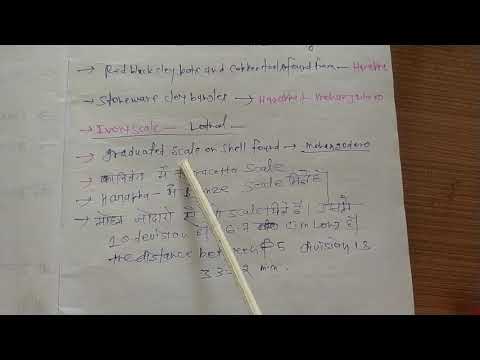 → Red black clay pots and copper tools found from — Harappa
→ Stoneware clay bangles → Harappa + Mohanjodaro
→ Ivory scale — Lothal
→ graduated scale on shell found → mohanjodaro
→ में terracotta scale
→ Harappa - में bronze scale मिले हैं
→ मोहन जोदारो में scale मिले हैं। उसमें
10 devision हैं 6.7 cm long है
the distance between 5 division is
mm.